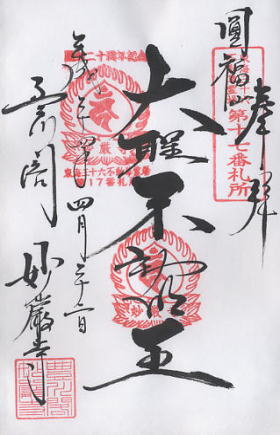 奉拝
圓福山
第十七番札所
大聖不動明王
二十周年記念
東海三十六不動尊霊場
17番札所
四月二十一日
豊川閣
妙厳寺